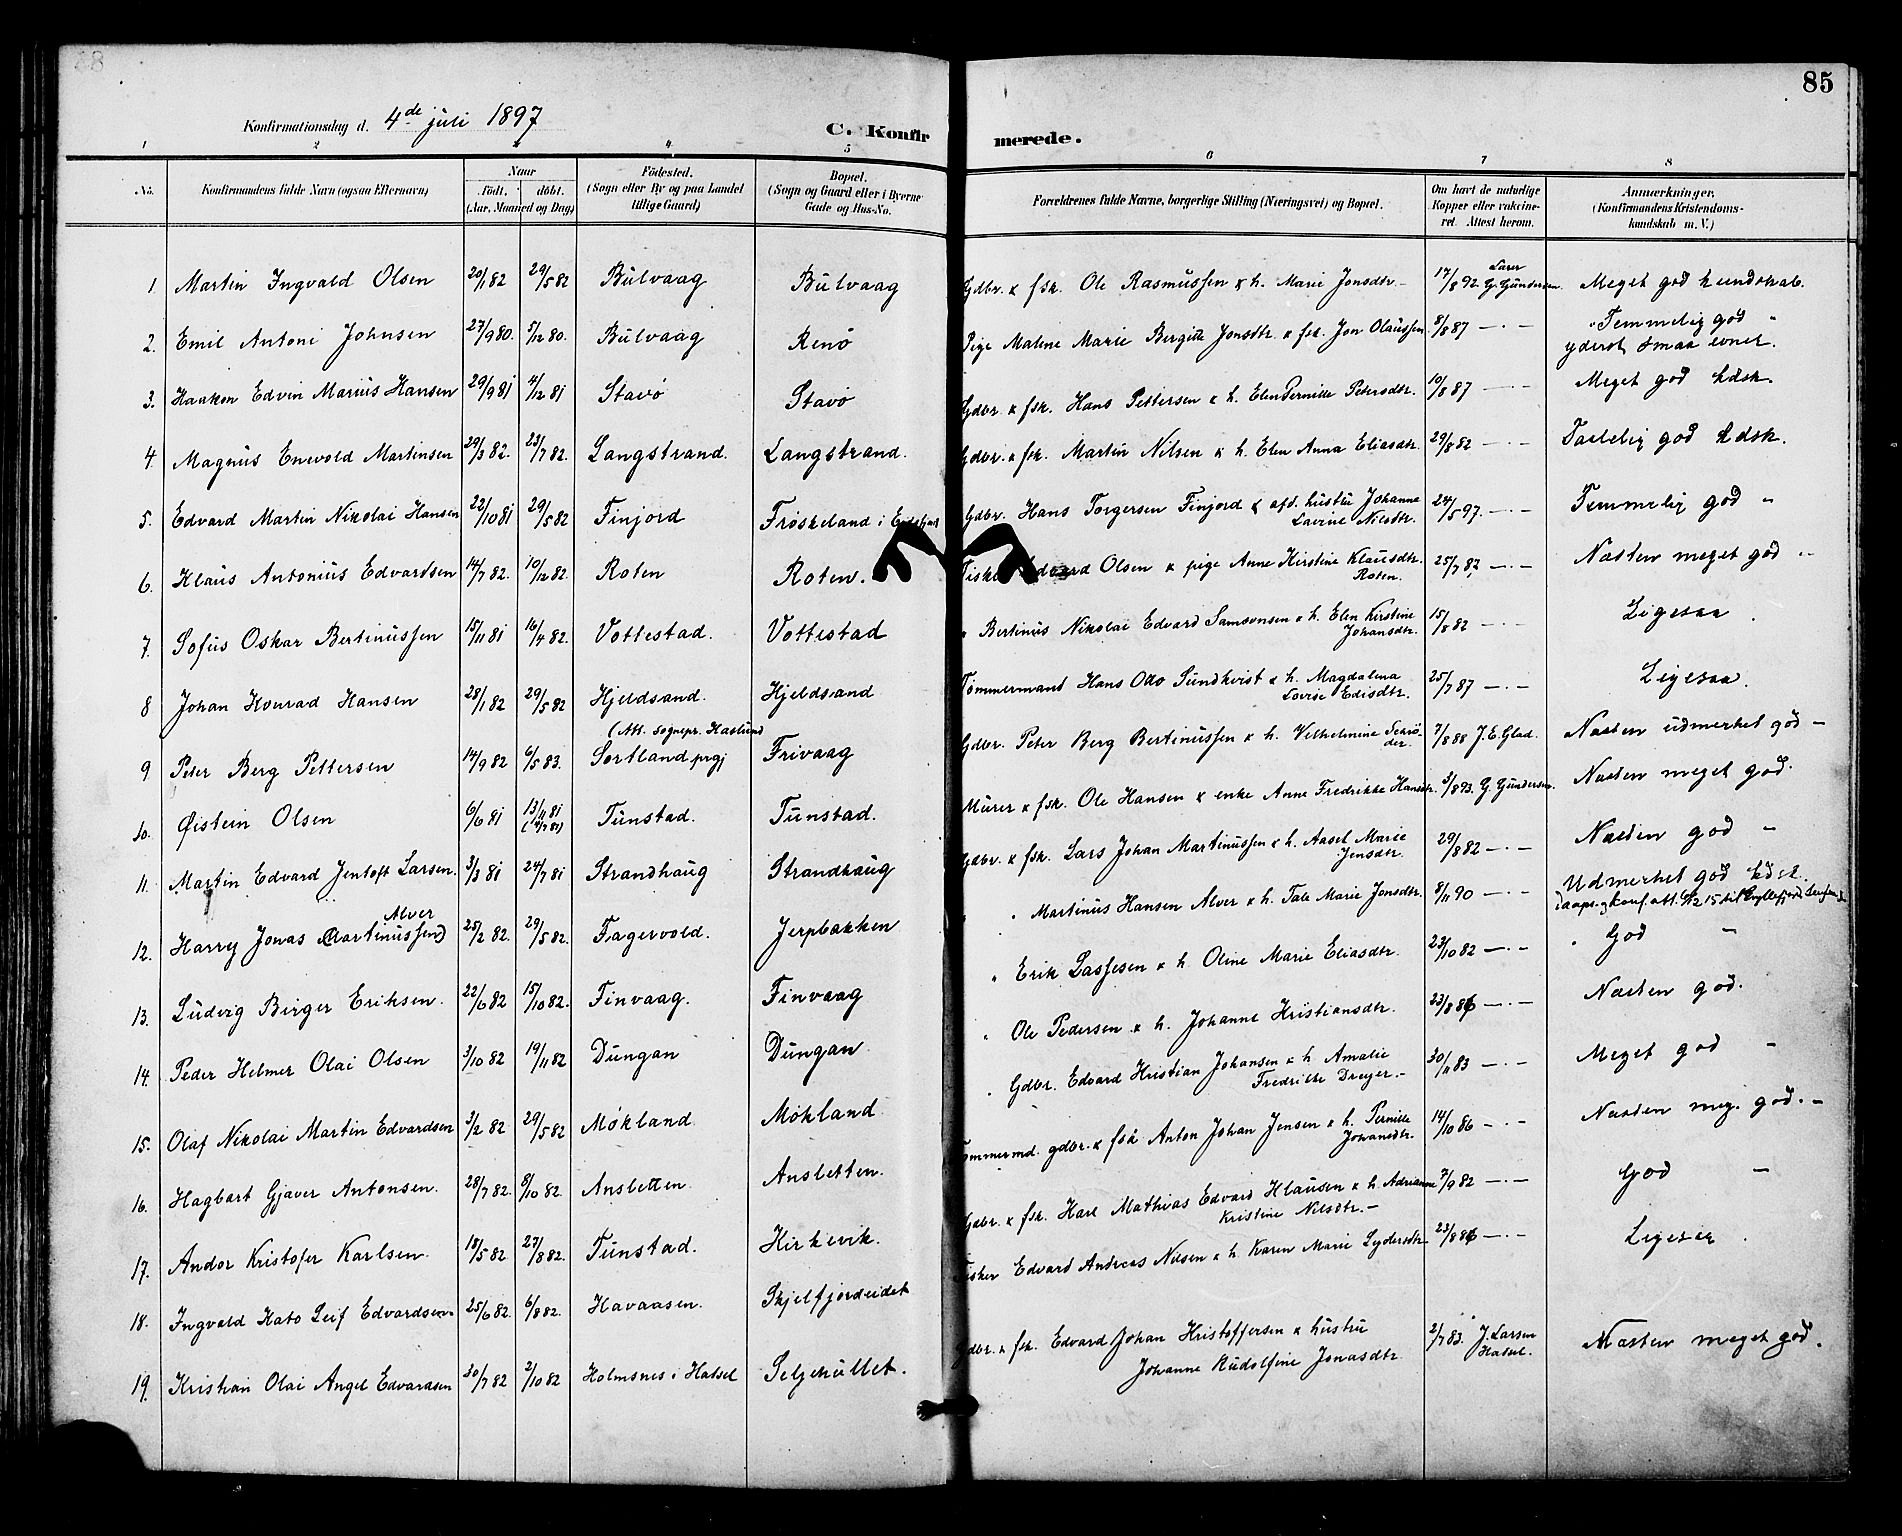 85
Konfirmationsdag d. 4de juli 1897
C. Konfirmerede.
1 2 3 4 5 6 7 8
No. Konfirmandens fulde Navn (ogsaa Efternavn) Naar født. døbt. (Aar, Maaned og Dag) Fødested. (Sogn eller By og paa Landet tillige Gaard) Bopæl. (Sogn og Gaard eller i Byerne Gade og Hus-No. Forældrenes fulde Navne, borgerlige Stilling (Næringsvei) og Bopæl. Om havt de naturlige Kopper eller vaccineret Attest herom. Anmærkninger. (Konfirmandens Kristendomskundskab m. V.)
1. Martin Ingvald Olsen 20/1 82 29/5 82 Bulvaag Bulvaag Gdbr. & fsk. Ole Rasmussen & h. Marie Jonsdtr. 17/8 92 Lærer G. Gundersen Meget god kundskab.
2. Emil Antoni Johnsen 27/9 80. 5/12 80. Bulvaag Renø Pige Malene Marie Bergitte Jonsdtr. & fsk. Jon Olaussen. 8/8 87 — . — Temmelig god " yderst smaa evner.
3. Haakon Edvin Marius Hansen 29/9 81 4/12 81 Stavø Stavø Gdbr. & fsk. Hans Pettersen & h. Elen Pernille Petersdtr. 10/8 87 — . — Meget god kdsk.
4. Magnus Enevold Martinsen 29/3 82. 23/7 82. Langstrand. Langstrand. Gdbr. & fsk. Martin Nilsen & h. Elen Anna Eliasdtr. 29/8 82 — . — god kdsk.
5. Edvard Martin Nikolai Hansen 22/10 81 29/5 82 Finjord Frøskeland i Gdbr. Hans Torgersen Finjord & afd. hustru Johanne Lavine Nilsdtr. 24/5 97. — . — Temmelig god "
6. Klaus Antonius Edvardsen 14/7 82. 10/12 82. Roten Roten. Fisker Edvard Olsen & pige Anne Kirstine Klausdtr. Roten. 25/7 87 — . — Næsten meget god "
7. Sofus Oskar Bertinussen 15/11 81 16/4 82. Vottestad. Vottestad " Bertinus Nikolai Edvard Samsonsen & h. Elen Kirstine Johansdtr. 15/8 82 — . — Ligesaa
8 Johan Konrad Hansen 28/1 82 29/5 82 Hjeldsand. Hjeldsand Tømmermand Hans Otto Sundkvist & h. Magdalena Lovise Edisdtr. 25/7 87 — . — Ligesaa.
9 Peter Berg Pettersen 14/9 82 6/5 83. (Att. sognepr. Haslund Sortland prgj Frivaag Gdbr. Peter Berg Bertinussen & h. Velhelmine Schrøder. 7/8 88 J. E. Glad. Næsten udmerket god —
10. Øistein Olsen 6/6 81 13/11 81 Tunstad. Tunstad. Murer & fsk. Ole Hansen & enke Anne Fredrikke Hansdtr. 3/8 93. G. Gundersen. Næsten meget god.
11. Martin Edvard Jentoft Larsen. 3/3 81 24/7 81 Strandhaug Strandhaug Gdbr. & fsk. Lars Johan Martinussen & h. Aasel Marie Jensdtr. 29/8 82 — . — Næsten god "
12. Harry Jonas (Martinussen) Alver 25/2 82. 29/5 82. Fagervold. Jerpbakken " " Martinus Hansen Alver & h. Tale Marie Jonsdtr. 8/11 90 — . — Udmerket god kdsk.
13. Ludvig Birger Eriksen. 22/6 82 15/10 82. Finvaag. Finvaag " Erik Lassesen & h. Oline Marie Eliasdtr. 23/10 82 — . — " God "
14. Peder Helmer Olai Olsen 3/10 82 19/11 82 Dungan Dungan " Ole Pedersen & h. Johanne Kristiansdtr. 23/8 86 — . — Næsten god.
15. Olaf Nikolai Martin Edvardsen 3/2 82 29/5 82 Møkland Møkland " Gdbr. Edvard Kristian Johansen & h. Amalie Fredrikke Dreyer. — 30/11 83 — . — Meget god "
16. Hagbart Gjæver Antonsen. 28/7 82. 8/10 82. Ansletten Ansletten. Tømmermd. gdbr. & fsk Anton Johan Jensen & h. Pernille Johansdtr. 14/10 86 — . — Næsten meg. god. —
17. Andor Kristofer Karlsen. 18/5 82 27/8 82. Tunstad. Kirkevik. Gdbr. & fsk. Karl Mathias Edvard Klausen & h. Adrianne Kristine Nilsdtr. — 7/9 82 — . — God "
18. Ingvald Kato Leif Edvardsen. 25/6 82. 6/8 82. Havaasen. Skjelfjordeidet Fisker Edvard Andreas Nilsen & h Karen Marie Lydersdtr 23/8 86 — . — Ligesaa .
19. Kristian Olai Angel Edvardsen 30/7 82 2/10 82 Holmsnes i Hadsel Seljehullet. Gdbr. & fsk. Edvard Johan Kristoffersen & hustru Johanne Rudolfine Jonasdtr 2/7 83. J. Larsen Hadsel. Næsten meget god.